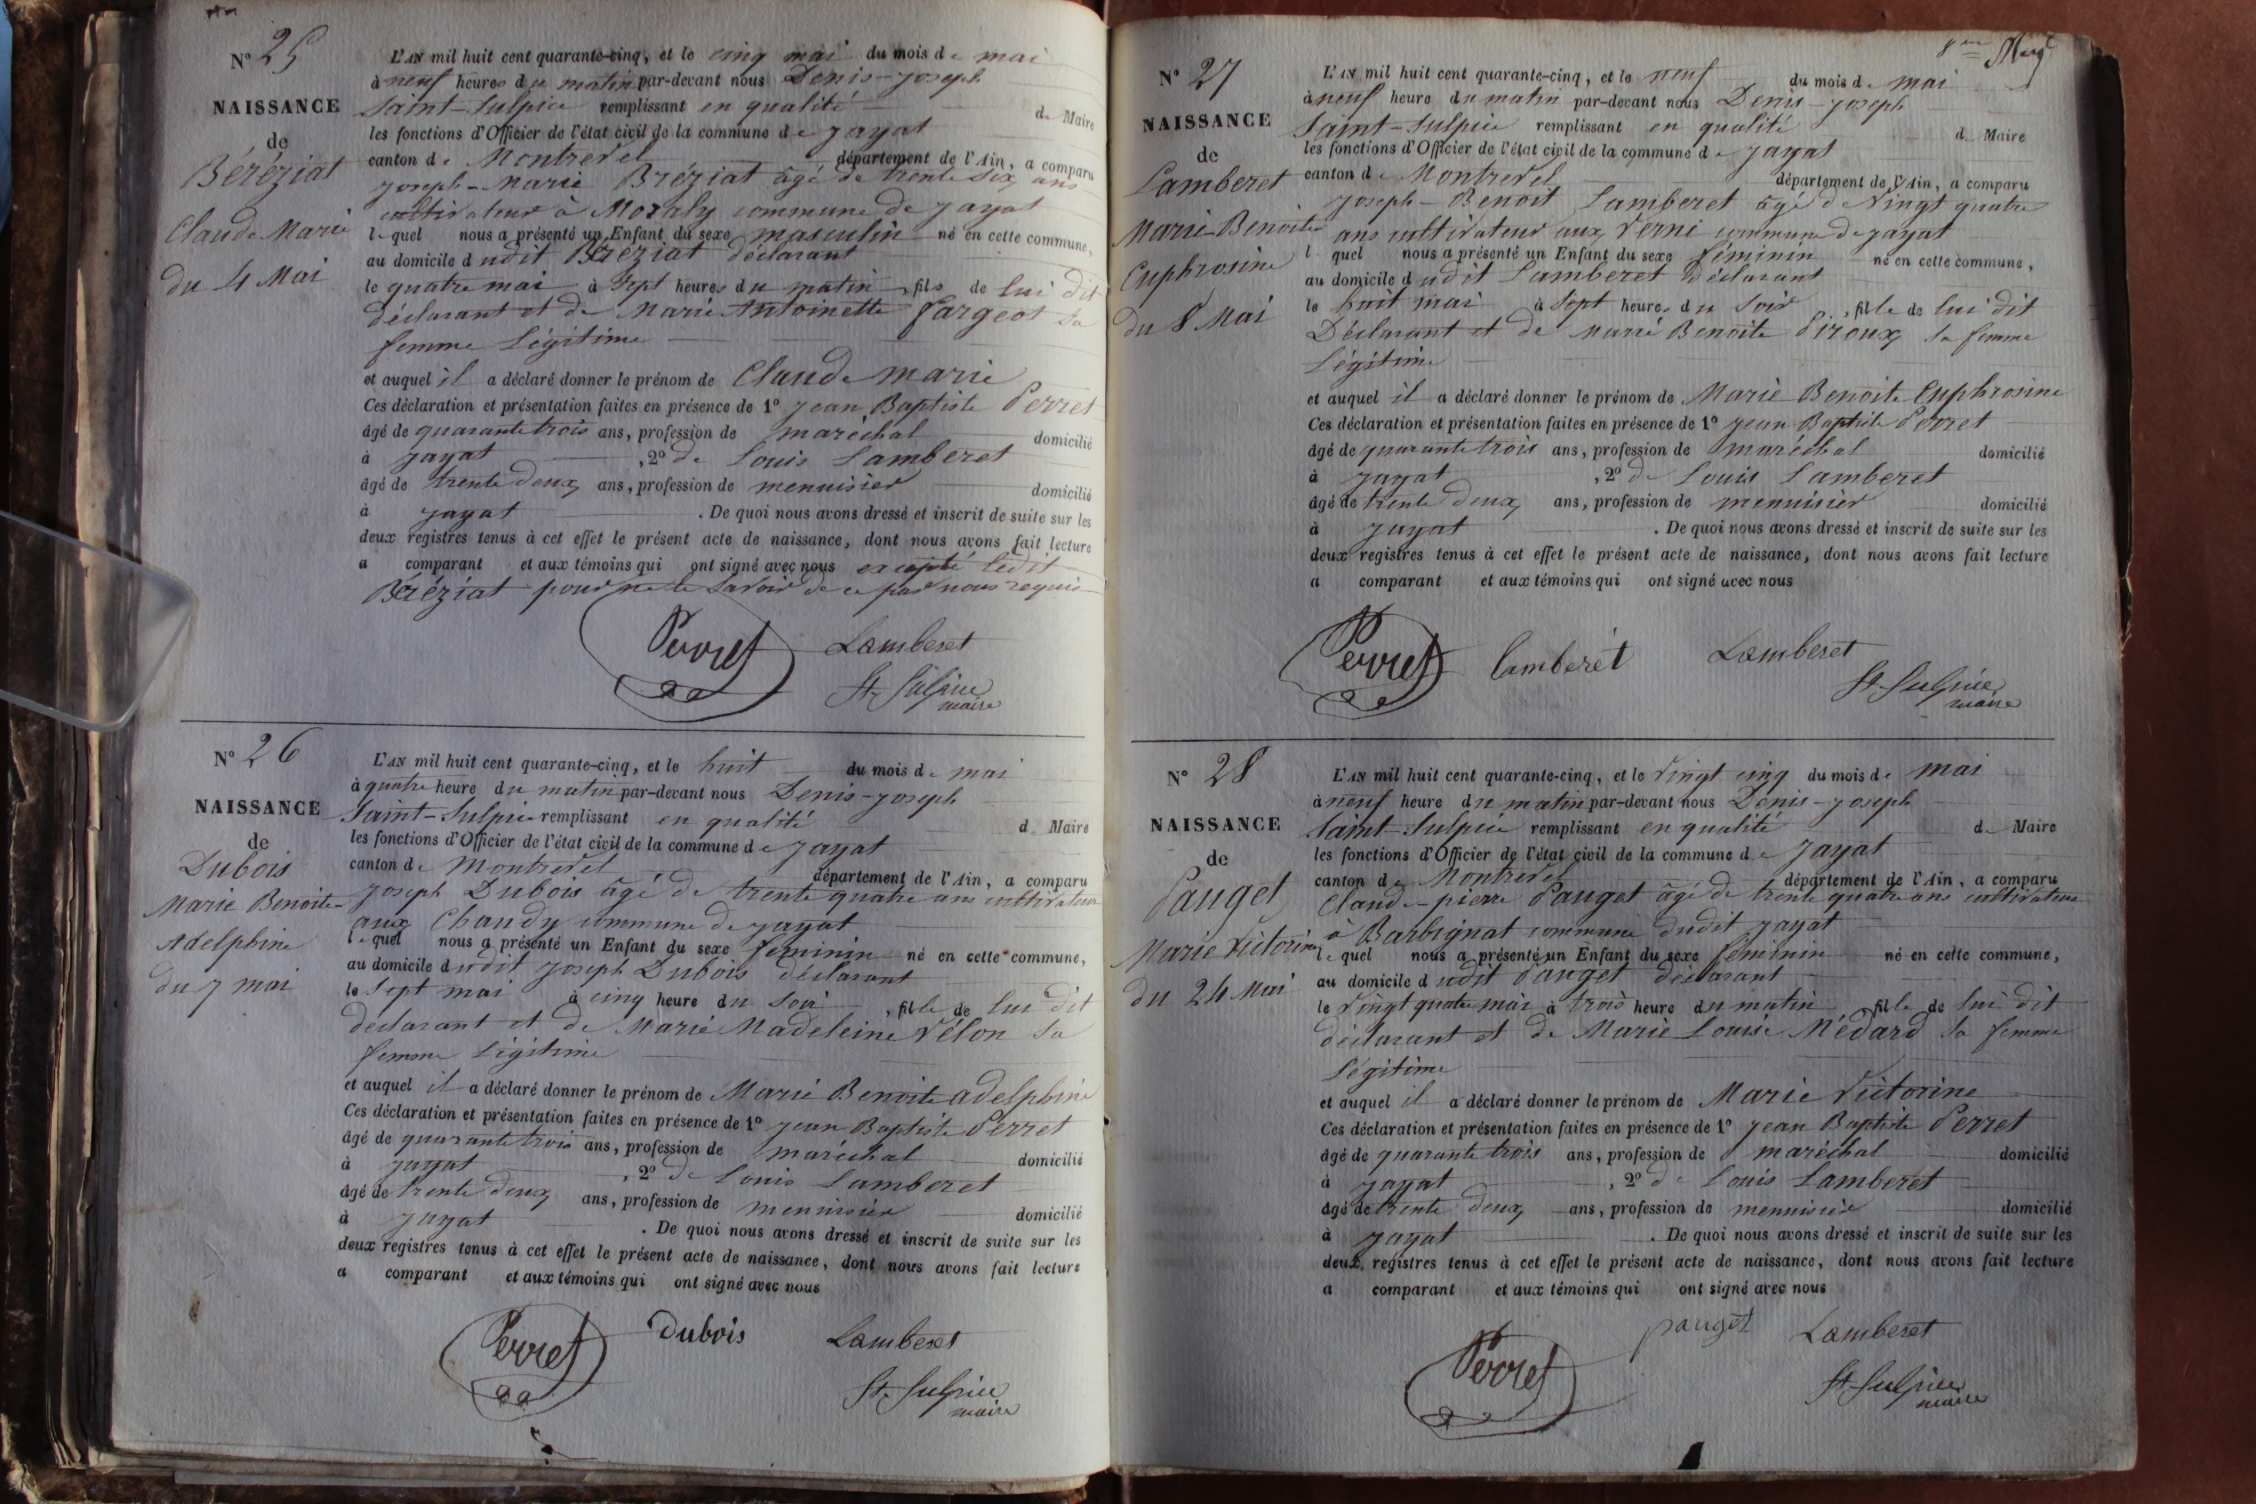 N° 25
NAISSANCE
de
Béréziat
Claude Marie
du 4 Mai
L'AN mil huit cent quarante-cinq, et le cinq mai du mois de mai
à neuf heures du matin par-devant nous Denis-joseph
Saint-Sulpice remplissant en qualité de Maire
les fonctions d'Officier de l'état civil de la commune de jayat
canton de Montrevel département de l'Ain, a comparu
joseph-Marie Bréziat âgé de trente six ans
cultivateur à Moraly commune de jayat
lequel nous a présenté un Enfant du sexe masculin né en cette commune,
au domicile dudit Béréziat déclarant
le quatre mai à sept heures du matin, fils de lui dit
déclarant et de Marie Antoinette fargeot sa
femme légitime
et auquel il a déclaré donner le prénom de Claude marie
Ces déclaration et présentation faites en présence de 1° jean Baptiste Perret
âgé de quarante trois ans, profession de maréchal domicilié
à jayat, 2° de Louis Lamberet
âgé de trente deux ans, profession de menuisier domicilié
à jayat. De quoi nous avons dressé et inscrit de suite sur les
deux registres tenus à cet effet le présent acte de naissance, dont nous avons fait lecture
a comparant et aux témoins qui ont signé avec nous excepté ledit
Béréziat pour ne le savoir de ce par nous requis
Perret Lamberet
St. Sulpice
maire
N° 26
NAISSANCE
de
Dubois
Marie Benoite
Adelphine
du 7 mai
L'AN mil huit cent quarante-cinq, et le huit du mois de mai
à quatre heure du matin par-devant nous Denis-joseph
Saint-Sulpice remplissant en qualité de Maire
les fonctions d'Officier de l'état civil de la commune de jayat
canton de Montrevel département de l'Ain, a comparu
joseph Dubois âgé de trente quatre ans cultivateur
aux Chandy commune de jayat
lequel nous a présenté un Enfant du sexe féminin né en cette commune,
au domicile dudit joseph Dubois déclarant
le sept mai à cinq heure du soir, fille de lui dit
déclarant et de Marie Madeleine Vélon sa
femme légitime
et auquel il a déclaré donner le prénom de Marie Benoite adelphine
Ces déclaration et présentation faites en présence de 1° jean Baptiste Perret
âgé de quarante trois ans, profession de maréchal domicilié
à jayat, 2° de Louis Lamberet
âgé de trente deux ans, profession de menuisier domicilié
à jayat. De quoi nous avons dressé et inscrit de suite sur les
deux registres tenus à cet effet le présent acte de naissance, dont nous avons fait lecture
a comparant et aux témoins qui ont signé avec nous
Perret Dubois Lamberet
St. Sulpice
maire
N° 27
NAISSANCE
de
Lamberet
Marie-Benoite
Euphrosine
du 8 Mai
L'AN mil huit cent quarante-cinq, et le neuf du mois de mai
à neuf heure du matin par-devant nous Denis-joseph
Saint-Sulpice remplissant en qualité de Maire
les fonctions d'Officier de l'état civil de la commune de jayat
canton de Montrevel département de l'Ain, a comparu
joseph-Benoit Lamberet âgé de vingt quatre
ans cultivateur aux Verni commune de jayat
lequel nous a présenté un Enfant du sexe féminin né en cette commune,
au domicile dudit Lamberet déclarant
le huit mai à sept heures du soir, fille de lui dit
Déclarant et de Marie Benoite Piroux sa femme
légitime
et auquel il a déclaré donner le prénom de Marie Benoite Euphrosine
Ces déclaration et présentation faites en présence de 1° jean Baptiste Perret
âgé de quarante trois ans, profession de maréchal domicilié
à jayat, 2° de Louis Lamberet
âgé de trente deux ans, profession de menuisier domicilié
à jayat. De quoi nous avons dressé et inscrit de suite sur les
deux registres tenus à cet effet le présent acte de naissance, dont nous avons fait lecture
a comparant et aux témoins qui ont signé avec nous
Perret Lamberet Lamberet
St. Sulpice
maire
N° 28
NAISSANCE
de
Pauget
Marie Victorine
du 24 Mai
L'AN mil huit cent quarante-cinq, et le vingt cinq du mois de mai
à neuf heure du matin par-devant nous Denis-joseph
Saint-Sulpice remplissant en qualité de Maire
les fonctions d'Officier de l'état civil de la commune de jayat
canton de Montrevel département de l'Ain, a comparu
Claude-pierre Pauget âgé de trente quatre ans cultivateur
à Barbignat commune dudit jayat
lequel nous a présenté un Enfant du sexe féminin né en cette commune,
au domicile dudit Pauget déclarant
le vingt quatre mai à trois heure du matin fille de lui dit
déclarant et de Marie Louise Médard sa femme
légitime
et auquel il a déclaré donner le prénom de Marie Victorine
Ces déclaration et présentation faites en présence de 1° jean Baptiste Perret
âgé de quarante trois ans, profession de maréchal domicilié
à jayat, 2° de Louis Lamberet
âgé de trente deux ans, profession de menuisier domicilié
à jayat. De quoi nous avons dressé et inscrit de suite sur les
deux registres tenus à cet effet le présent acte de naissance, dont nous avons fait lecture
a comparant et aux témoins qui ont signé avec nous
Perret pauget Lamberet
St. Sulpice
maire